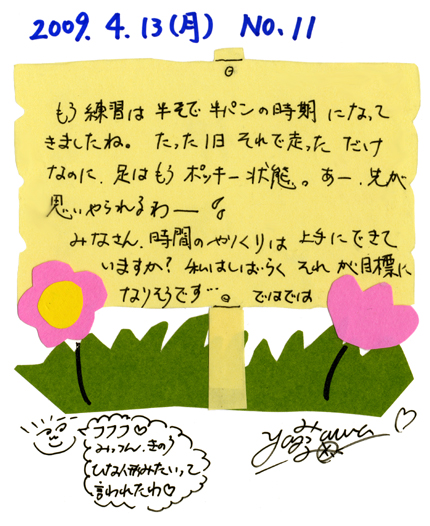 2009. 4. 13(月) NO. 11
もう練習は半そで半パンの時期になって
きましたね。たった1日それで走っただけ
なのに、足はもうポッキー状態。あー、先が
思いやられるわー
みなさん、時間のやりくりは上手にできて
いますか？私はしばらくそれが目標に
なりそうです… ではでは
フフフ♡
みっつん、きのう
ひな人形みたいって
言われたわ♡